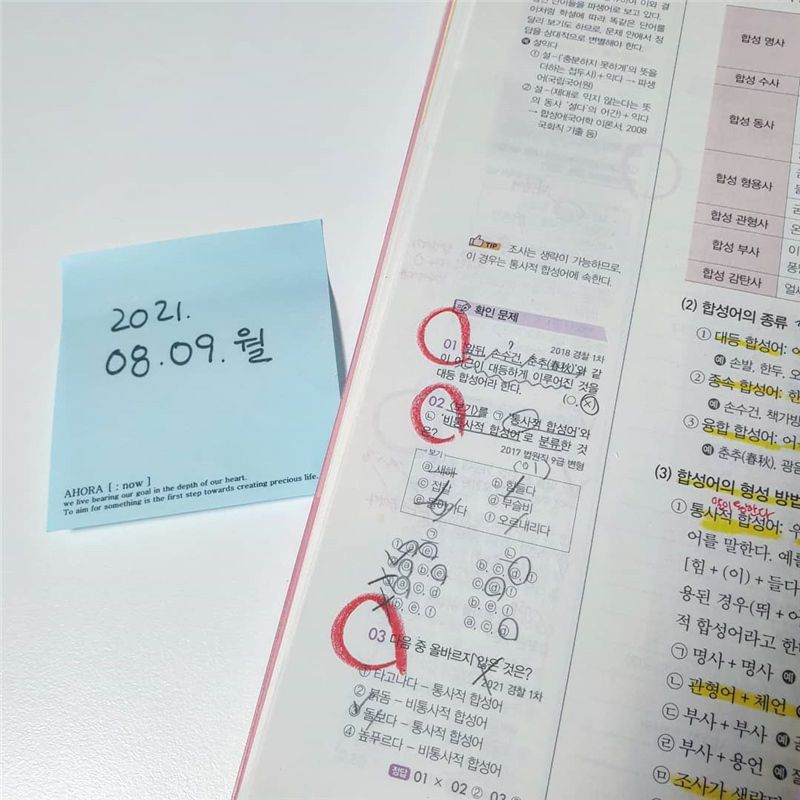 2021.
08.09.월
AHORA [ : now ]
we live bearing our goal in the depth of our heart.
To aim for something is the first step towards creating precious life.
이처럼 학설에 따라 똑같은 단어를
달리 보기도 하므로, 문제 안에서 정
답을 상대적으로 변별해야 한다.
예 설익다
① 설-('충분하지 못하게'의 뜻을
더하는 접두사) + 익다 → 파생
어(국립국어원)
② 설-(제대로 익지 않는다는 뜻
의 동사 '설다'의 어간) + 익다
→ 합성어(국어학 이론서, 2008
국회직 기출 등)
TIP 조사는 생략이 가능하므로,
이 경우는 통사적 합성어에 속한다.
확인 문제
2018 경찰 1차
01 '앞뒤, 손수건, 춘추(春秋)'와 같
이 어근이 대등하게 이루어진 것을
대등 합성어라 한다. (○, ×)
02 <보기>를 ㉠ '통사적 합성어'와
㉡ '비통사적 합성어'로 분류한 것
은?
2017 법원직 9급 변형
보기
ⓐ 새해 ⓑ 힘들다
ⓒ 접칼 ⓓ 부슬비
ⓔ 돌아가다 ⓕ 오르내리다
㉠ ㉡
03 다음 중 올바르지 않은 것은?
2021 경찰 1차
① 타고나다 – 통사적 합성어
② 붉돔 – 비통사적 합성어
③ 돌보다 – 통사적 합성어
④ 높푸르다 – 비통사적 합성어
정답 01 × 02 ② 03
합성 명사
합성 수사
합성 동사
합성 형용사
합성 관형사
합성 부사
합성 감탄사
(2) 합성어의 종류
① 대등 합성어:
예 손발, 한두, 오
② 종속 합성어: 한
예 손수건, 책가방
③ 융합 합성어: 어
예 춘추(春秋), 광음
(3) 합성어의 형성 방법
① 통사적 합성어: 우
어를 말한다. 예를
[힘 + (이) + 들다
용된 경우(뛰 + 어
적 합성어라고 한
㉠ 명사 + 명사 예
㉡ 관형어 + 체언 예
㉢ 부사 + 부사 예
㉣ 부사 + 용언 예
㉤ 조사가 생략